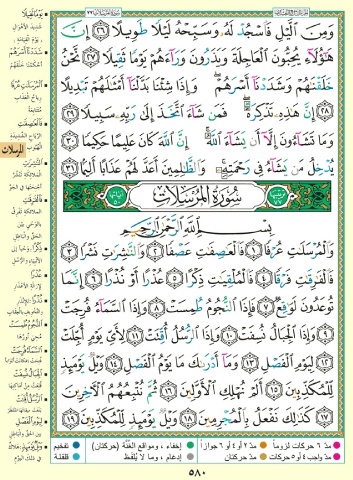 وَمِنَ ٱلَّيْلِ فَٱسْجُدْ لَهُۥ وَسَبِّحْهُ لَيْلًا طَوِيلًا ﴿٢٦﴾ إِنَّ
هَٰٓؤُلَآءِ يُحِبُّونَ ٱلْعَاجِلَةَ وَيَذَرُونَ وَرَآءَهُمْ يَوْمًا ثَقِيلًا ﴿٢٧﴾ نَّحْنُ
خَلَقْنَٰهُمْ وَشَدَدْنَآ أَسْرَهُمْ ۖ وَإِذَا شِئْنَا بَدَّلْنَآ أَمْثَٰلَهُمْ تَبْدِيلًا
﴿٢٨﴾ إِنَّ هَٰذِهِۦ تَذْكِرَةٌ ۖ فَمَن شَآءَ ٱتَّخَذَ إِلَىٰ رَبِّهِۦ سَبِيلًا ﴿٢٩﴾
وَمَا تَشَآءُونَ إِلَّآ أَن يَشَآءَ ٱللَّهُ ۚ إِنَّ ٱللَّهَ كَانَ عَلِيمًا حَكِيمًا ﴿٣٠﴾
يُدْخِلُ مَن يَشَآءُ فِى رَحْمَتِهِۦ ۚ وَٱلظَّٰلِمِينَ أَعَدَّ لَهُمْ عَذَابًا أَلِيمًۢا ﴿٣١﴾
سُورَةُ المُرْسَلَات
بِسْمِ ٱللَّهِ ٱلرَّحْمَٰنِ ٱلرَّحِيمِ
وَٱلْمُرْسَلَٰتِ عُرْفًا ﴿١﴾ فَٱلْعَٰصِفَٰتِ عَصْفًا ﴿٢﴾ وَٱلنَّٰشِرَٰتِ نَشْرًا ﴿٣﴾
فَٱلْفَٰرِقَٰتِ فَرْقًا ﴿٤﴾ فَٱلْمُلْقِيَٰتِ ذِكْرًا ﴿٥﴾ عُذْرًا أَوْ نُذْرًا ﴿٦﴾ إِنَّمَا
تُوعَدُونَ لَوَٰقِعٌ ﴿٧﴾ فَإِذَا ٱلنُّجُومُ طُمِسَتْ ﴿٨﴾ وَإِذَا ٱلسَّمَآءُ فُرِجَتْ
﴿٩﴾ وَإِذَا ٱلْجِبَالُ نُسِفَتْ ﴿١٠﴾ وَإِذَا ٱلرُّسُلُ أُقِّتَتْ ﴿١١﴾ لِأَىِّ يَوْمٍ أُجِّلَتْ
﴿١٢﴾ لِيَوْمِ ٱلْفَصْلِ ﴿١٣﴾ وَمَآ أَدْرَىٰكَ مَا يَوْمُ ٱلْفَصْلِ ﴿١٤﴾ وَيْلٌ يَوْمَئِذٍ
لِّلْمُكَذِّبِينَ ﴿١٥﴾ أَلَمْ نُهْلِكِ ٱلْأَوَّلِينَ ﴿١٦﴾ ثُمَّ نُتْبِعُهُمُ ٱلْءَاخِرِينَ
﴿١٧﴾ كَذَٰلِكَ نَفْعَلُ بِٱلْمُجْرِمِينَ ﴿١٨﴾ وَيْلٌ يَوْمَئِذٍ لِّلْمُكَذِّبِينَ ﴿١٩﴾
مدّ ٦ حركات لزوماً مدّ ٢ أو ٤ أو ٦ جوازاً إخفاء، ومواقع الغنّة (حركتان) تفخيم
مدّ واجب ٤ أو ٥ حركات مدّ حركتان إدغام، وما لا يُلفظ قلقلة
٥٨٠
المرسلات